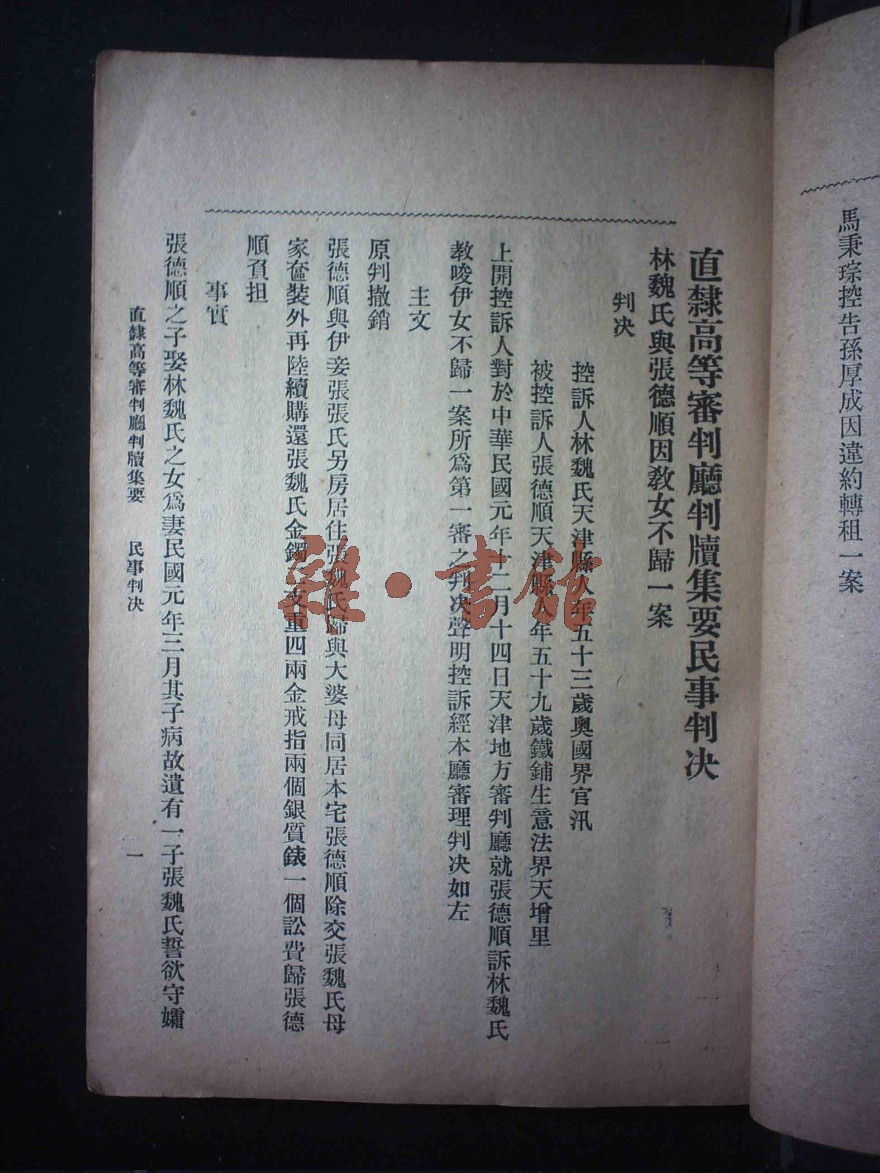 馬秉琮控告孫厚成因違約轉租一案
直隸高等審判廳判牘集要民事判決
林魏氏與張德順因教女不歸一案
判决
控訴人林魏氏天津縣人年五十三歲奧國界官汛
被控訴人張德順天津縣人年五十九歲鐵鋪生意法界天增里
上開控訴人對於中華民國元年十二月十四日天津地方審判廳就張德順訴林魏氏
教唆伊女不歸一案所爲第一審之判决聲明控訴經本廳審理判决如左
主文
原判撤銷
張德順與伊妾張張氏另房居住張魏氏歸與大婆母同居本宅張德順除交張魏氏母
家奩裝外再陸續購還張魏氏金鐲一支重四兩金戒指兩個銀質錶一個訟費歸張德
順負担
事實
張德順之子娶林魏氏之女爲妻民國元年三月其子病故遺有一子張魏氏誓欲守孀
直隸高等審判廳判牘集要 民事判决 一
雜·書館